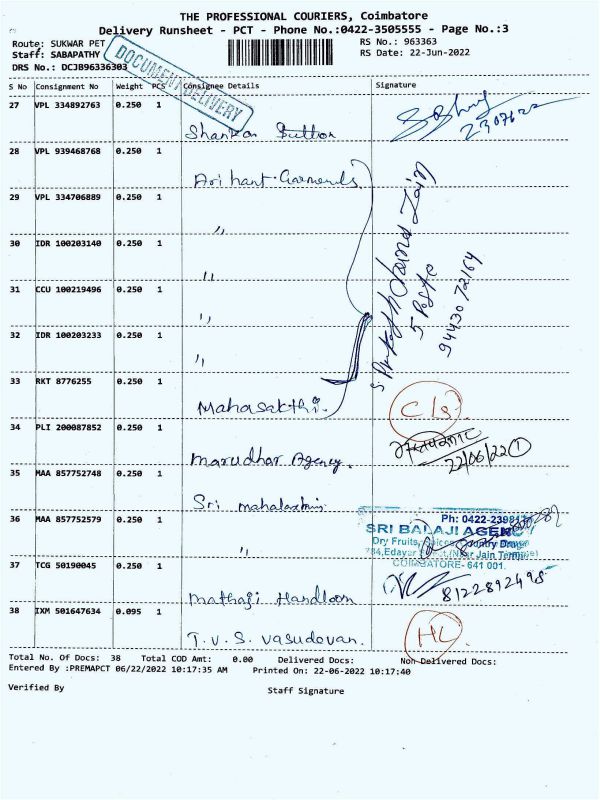 THE PROFESSIONAL COURIERS, Coimbatore
Delivery Runsheet - PCT - Phone No.:0422-3505555 - Page No.:3
Route: SUKWAR PET RS No.: 963363
Staff: SABAPATHY RS Date: 22-Jun-2022
DRS No.: DCJB96336303
DOCUMENT DELIVERY
S No Consignment No Weight PCS Consignee Details Signature
27 VPL 334892763 0.250 1
Shankar Button
28 VPL 939468768 0.250 1
Arihant Garments
29 VPL 334706889 0.250 1
,,
30 IDR 100203140 0.250 1
,,
31 CCU 100219496 0.250 1
,,
32 IDR 100203233 0.250 1
,,
94430 72164
33 RKT 8776255 0.250 1
Mahasakthi.
34 PLI 200087852 0.250 1
Marudhar Agency.
22/06/22 1
35 MAA 857752748 0.250 1
Sri mahalaxmi
36 MAA 857752579 0.250 1
,,
Ph: 0422-23981
SRI BALAJI AGENCY
Dry Fruits, Country Drugs
784, Edayar Street, (Near Jain Temple)
COIMBATORE- 641 001.
37 TCG 50190045 0.250 1
Mathaji Handloom
8122892498
38 IXM 501647634 0.095 1
T.V.S. Vasudevan.
HL
Total No. Of Docs: 38 Total COD Amt: 0.00 Delivered Docs: Non Delivered Docs:
Entered By :PREMAPCT 06/22/2022 10:17:35 AM Printed On: 22-06-2022 10:17:40
Verified By Staff Signature